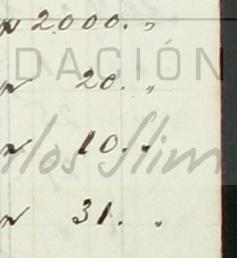 2000. „
DACIÓN
20. „
10. „
rlos Slim
31. „